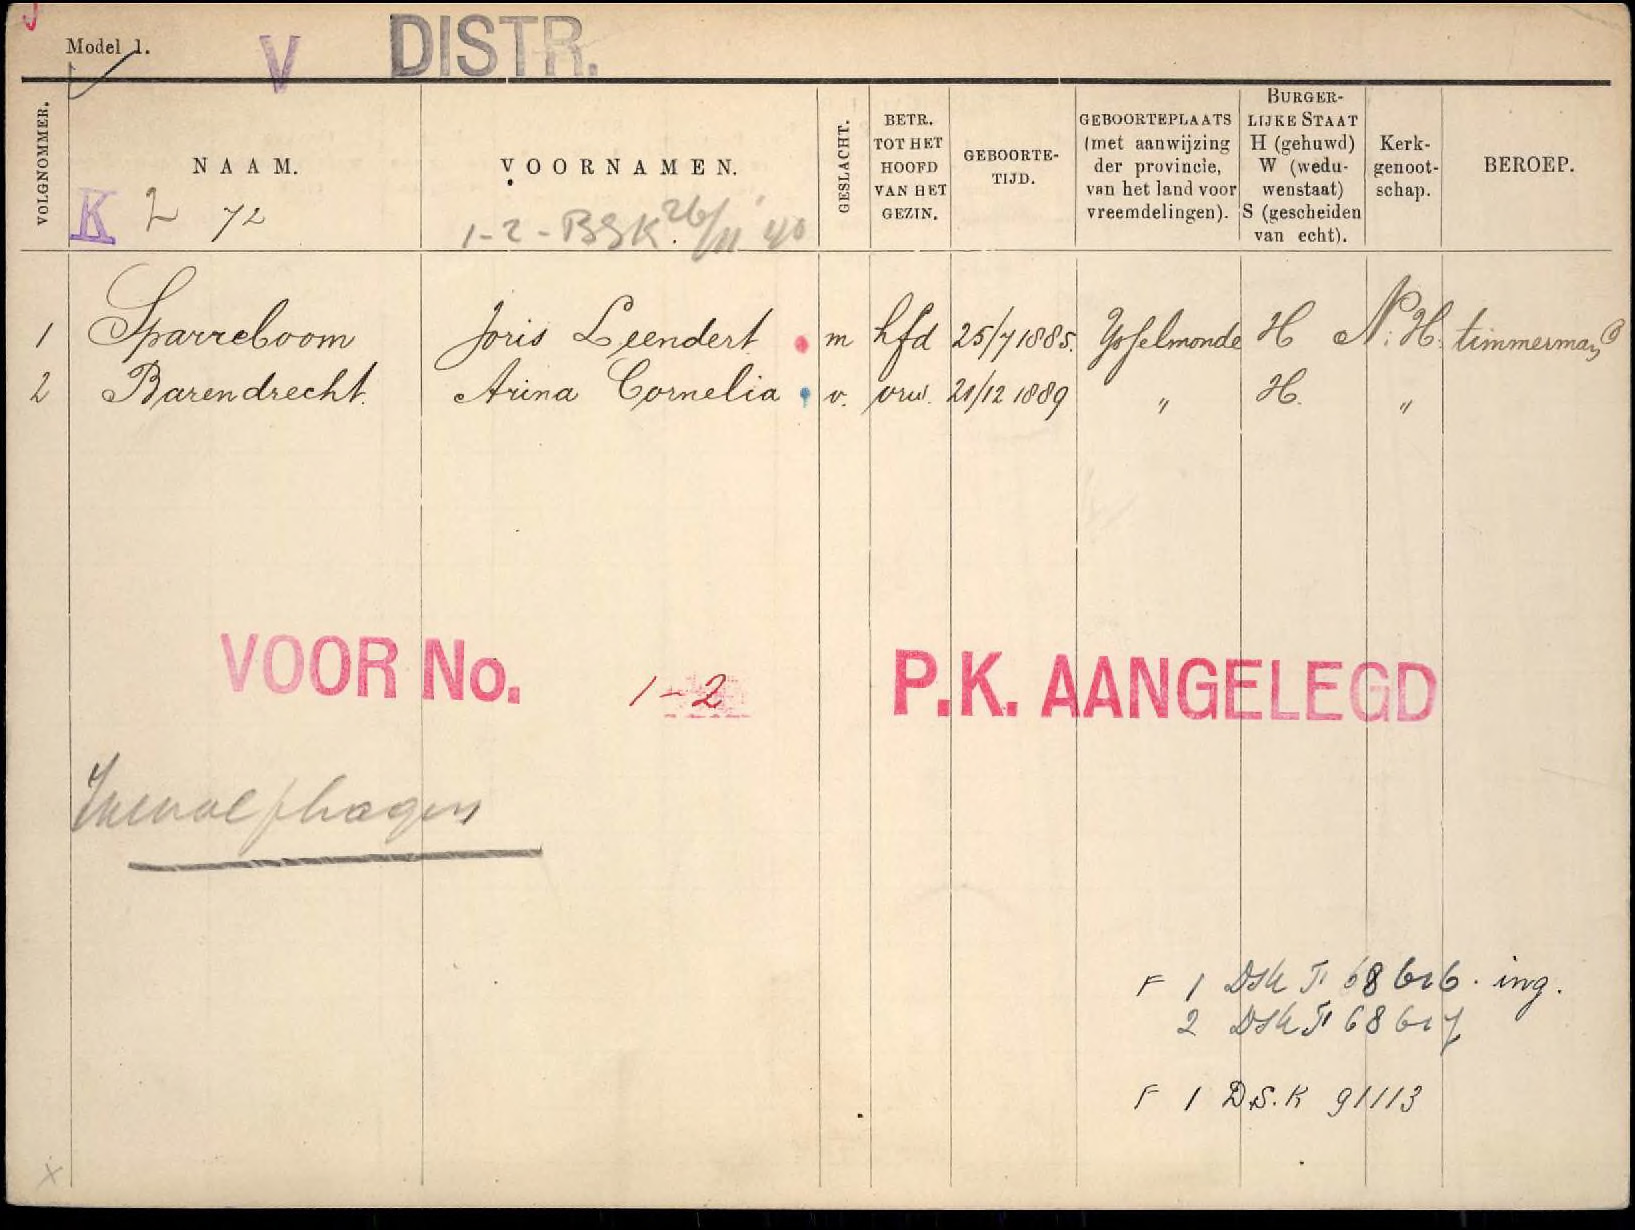 Model 1.
V DISTR.
VOLGNOMMER.
NAAM.
VOORNAMEN.
GESLACHT.
BETR.
TOT HET
HOOFD
VAN HET
GEZIN.
GEBOORTE-
TIJD.
GEBOORTEPLAATS
(met aanwijzing
der provincie,
van het land voor
vreemdelingen).
BURGER-
LIJKE STAAT
H (gehuwd)
W (wedu-
wenstaat)
S (gescheiden
van echt).
Kerk-
genoot-
schap.
BEROEP.
K 2 72
1-2-BSK. 26/11 '40
1 Sparreboom Joris Leendert m hfd 25/7 1885. Ysselmonde H N.H. timmerman
2 Barendrecht. Arina Cornelia v. vrw. 21/12 1889 " H. "
VOOR No. 1-2 P.K. AANGELEGD
F 1 DSK F 68 616. ing.
2 DSK F 68 617
F 1 D.S.K 91113